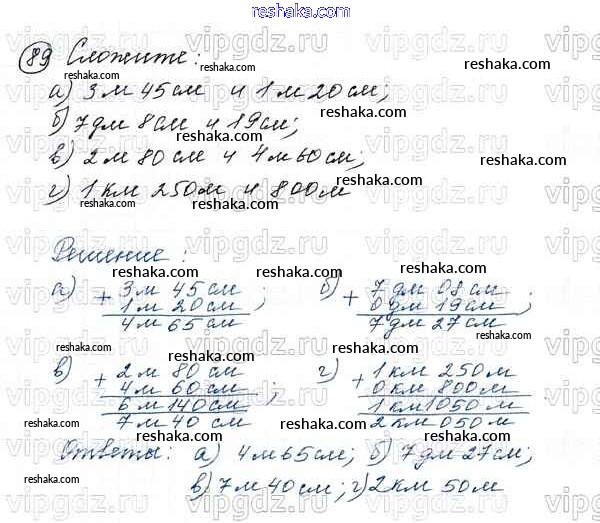 reshaka.com
89 Сложите:
а) 3 м 45 см и 1 м 20 см;
б) 7 дм 8 см и 19 см;
в) 2 м 80 см и 4 м 60 см;
г) 1 км 250 м и 800 м
Решение:
а) + 3 м 45 см
1 м 20 см ;
4 м 65 см
б) + 7 дм 08 см
0 дм 19 см ;
7 дм 27 см
в) + 2 м 80 см
4 м 60 см
6 м 140 см
7 м 40 см
г) + 1 км 250 м
0 км 800 м
1 км 1050 м
2 км 050 м
Ответы: а) 4 м 65 см; б) 7 дм 27 см;
в) 7 м 40 см; г) 2 км 50 м